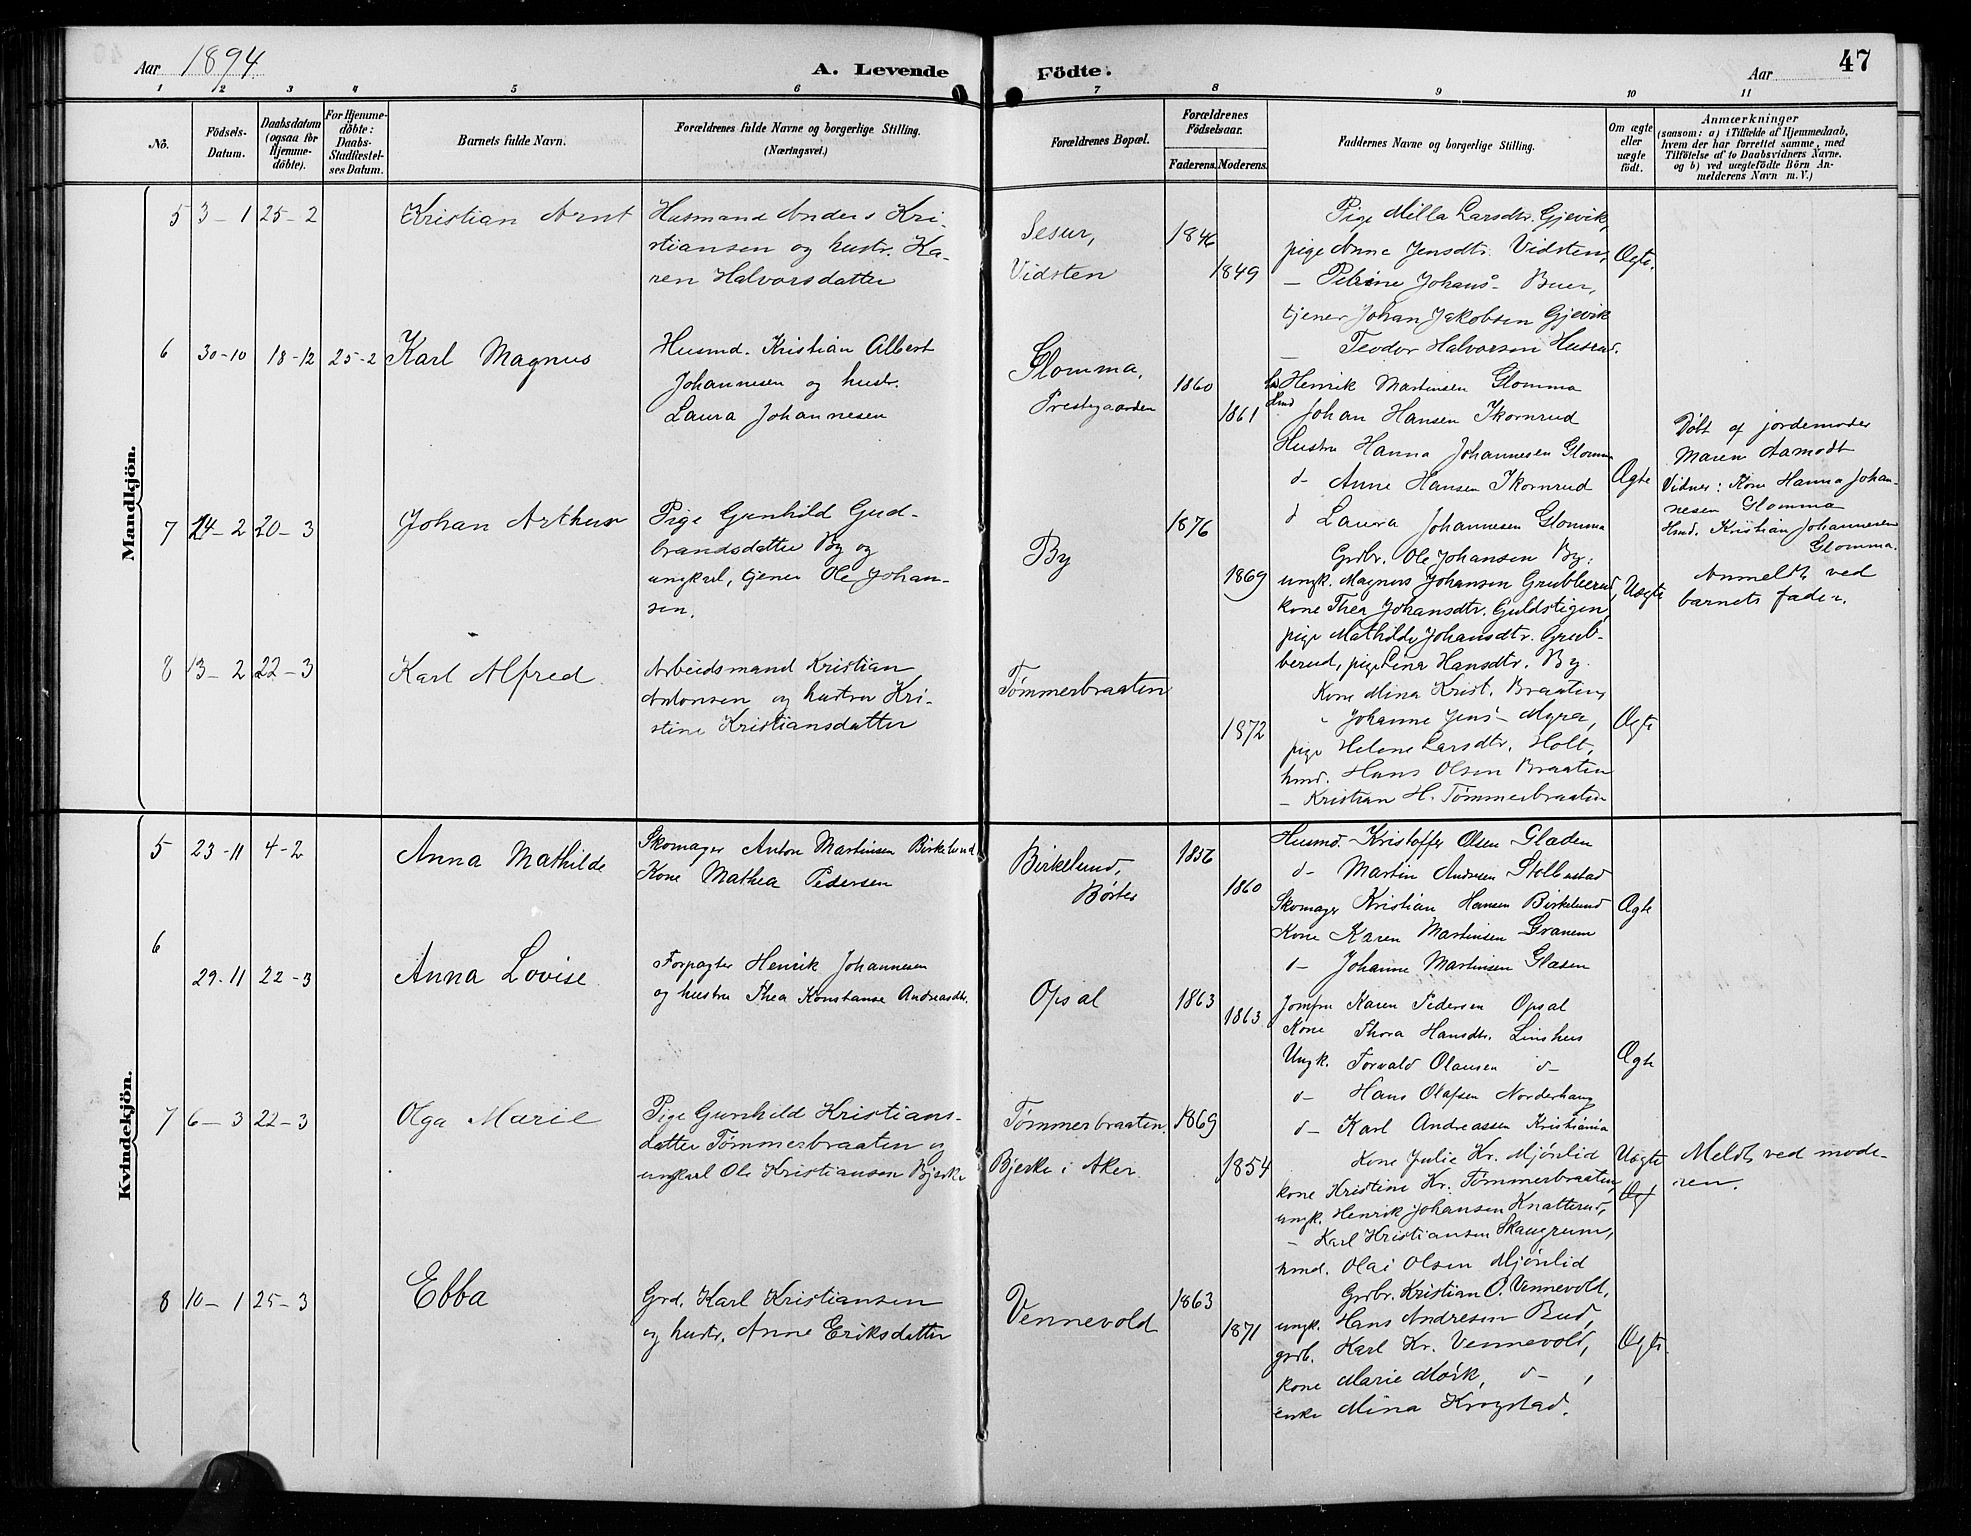 Aar 1894. A. Levende Födte. Aar 47
1 2 3 4 5 6 7 8 9 10 11
No.
Födsels-Datum.
Daabsdatum (ogsaa for Hjemme-döbte).
For Hjemme-döbte: Daabs-Stadfæstel-ses Datum.
Barnets fulde Navn.
Forældrenes fulde Navne og borgerlige Stilling.
(Næringsvei.)
Forældrenes Bopæl.
Forældrenes Födselsaar.
Faderens. Moderens.
Faddernes Navne og borgerlige Stilling.
Om ægte eller uægte födt.
Anmærkninger
(saasom: a) i Tilfælde af Hjemmedaab,
hvem der har forrettet samme, med
Tilföielse af to Daabsvidners Navne.
og b) ved uægtefödte Börn An-
melderens Navn m. V.)
Mandkjön.
5 3-1 25-2 Kristian Arnt
Husmand Anders Kri-
stiansen og hustr. Ka-
ren Halvorsdatter
Vidsten
1846 1849
Pige Milla Larsdtr. Gjevik,
pige Anne Jensdtr. Vidsten,
— Petrine Johans- Buer,
tjener Johan Jakobsen Gjevik
— Teodor Halvorsen Husrud.
Ægte.
6 30-10 18-12 25-2 Karl Magnus
Husmd. Kristian Albert
Johannesen og hustr.
Laura Johannesen
Glomma,
Prestegaarden
1860 1861
Henrik Martinsen Glomma
Hmd Johan Hansen Ikornrud
Hustru Hanna Johannesen Glomma
d- Anne Hansen Ikornrud
d Laura Johannesen Glomma
Ægte
Døbt af jordemoder
Maren Aamodt
Vidner: Kone Hanna Johan-
nesen Glomma
Hmd. Kristian Johannesen
Glomma.
7 14-2 20-3 Johan Arthur
Pige Gunhild Gud-
brandsdatter By og
ungkarl, tjener Ole Johan-
sen.
By
1876 1869
Grdbr. Ole Johansen By:
ungk. Magnus Johansen Grubberud,
kone Thea Johansdtr. Guldstigen,
pige Mathilde Johansdtr. Grub-
berud, pige Lina Hansdtr. By.
Uægte
Anmeldt ved
barnets fader.
8 13-2 22-3 Karl Alfred
Arbeidsmand Kristian
Antonsen og hustru Kri-
stine Kristiansdatter
Tømmerbraaten
1872
Kone Mina Krist. Braaten,
" Johanne Jens- Myra,
pige Helene Larsdtr. Holt,
hmd. Hans Olsen Braaten
— Kristian H. Tømmerbraaten
Ægte
Kvindekjön.
5 23-11 4-2 Anna Mathilde
Skomager Anton Martinsen Birkelund
Kone Mathea Pedersen
Birkelund,
Børter
1856 1860
Husmd. Kristoffer Olsen Gladen
d- Martin Andresen
Skomager Kristian Hansen Birkelund
Kone Karen Martinsen Granem
d- Johanne Martinsen Glasen
Ægte
6 29-11 22-3 Anna Lovise
Forpagter Henrik Johannesen
og hustru Thea Konstanse Andreasdtr.
Opsal
1863 1863
Jomfru Karen Pedersen Opsal
Kone Thora Hansdtr. Linshus
Ungk. Torvald Olausen d-
d- Hans Olafsen Norderhaug
d- Karl Andreassen Kristiania
Ægte
7 6-3 22-3 Olga Marie
Pige Gunhild Kristians-
datter Tømmerbraaten og
ungkarl Ole Kristiansen Bjerke
Tømmerbraaten.
Bjerke i Aker.
1869 1854
Kone Julie Kr. Mjønlid
kone Kristine Kr. Tømmerbraaten,
ungk. Henrik Johansen Knatterud,
— Karl Kristiansen Skaugrum,
hmd. Olai Olsen Mjønlid
Uægte
Meldt ved mode-
ren.
8 10-1 25-3 Ebba
Grd. Karl Kristiansen
og hustr. Anne Eriksdatter
Vennevold
1863 1871
Grdbr. Kristian O. Vennevold,
ungk. Hans Andresen Bud,
grdb. Karl Kr. Vennevold,
kone Marie Mørk, d- ,
enke Mina Krogstad.
Ægte.